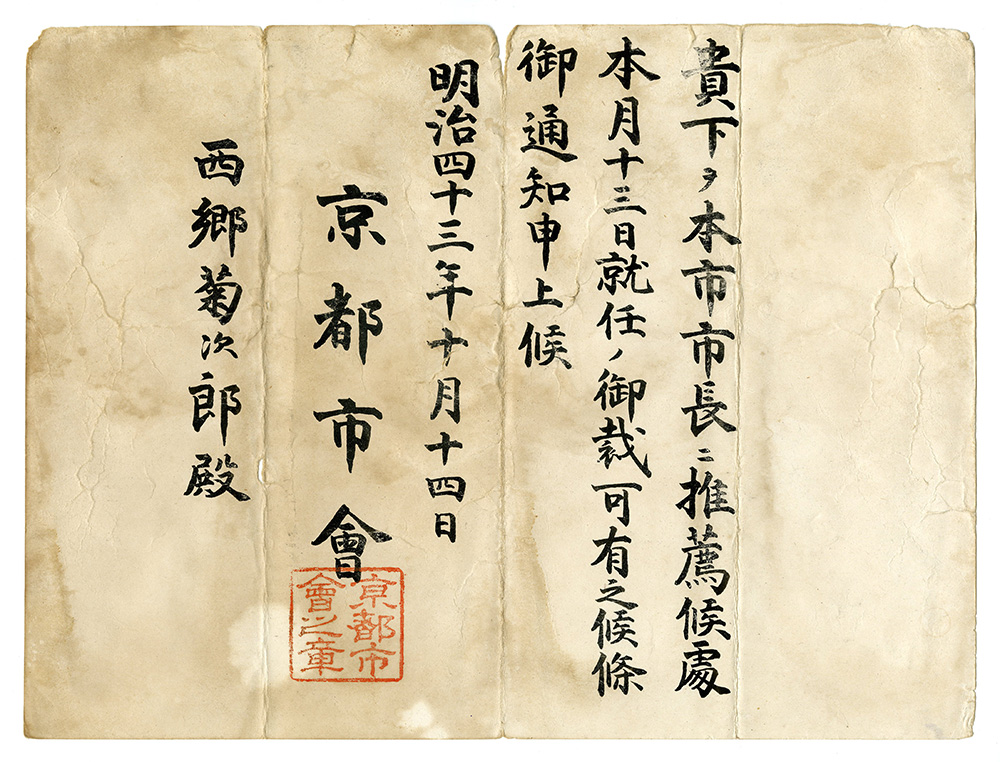 貴下ヲ本市市長ニ推薦候處
本月十三日就任ノ御裁可有之候條
御通知申上候
明治四十三年十月十四日
京都市會
京都市
會之章
西郷菊次郎殿